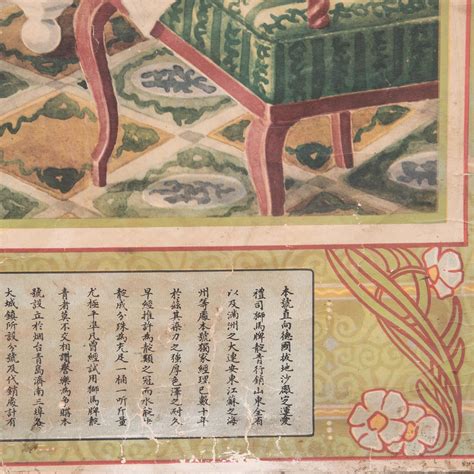 本號直向德爾拔地沙廠定運愛
禮司獅馬牌靛青行銷山東全省
以及滿洲之大連安東江蘇之海
州等處本號獨家經理已數十年
於茲其染力之強厚色澤之耐久
早經推許為靛顏之冠而水靛
靛成分殊為充足一桶一听斤量
尤極平準凡曾經試用獅馬牌靛
青者莫不交相讚譽樂為多購本
號設立於烟台青島濟南三埠各
大城鎮所設分號及代銷處計有